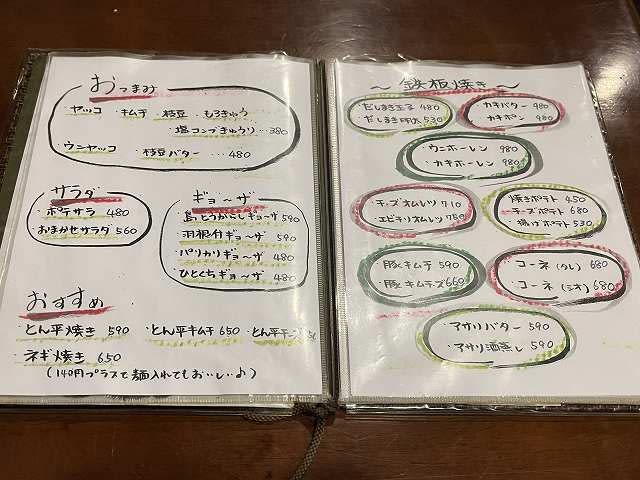 おつまみ
・ヤッコ ・キムチ ・枝豆 ・もろきゅう
・塩コンブきゅうり・・・380
・ウニヤッコ ・枝豆バター・・・480
サラダ
・ポテサラ 480
・おまかせサラダ 560
ギョ〜ザ
・島とうがらしギョーザ 590
・羽根付ギョ〜ザ 590
・パリカリギョ〜ザ 480
・ひとくちギョ〜ザ 480
おすすめ
・とん平焼き 590 ・とん平キムチ 650 ・とん平チーズ
・ネギ焼き 650
(140円プラスで麺入れてもおいしい♪)
〜鉄板焼き〜
・だしまき玉子 480
・だしまき明太 530
・カキバター 980
・カキポン 980
・ウニホーレン 980
・カキホーレン 980
・チーズオムレツ 710
・エビチリオムレツ 750
・焼きポテト 450
・チーズポテト 680
・揚げポテト 530
・豚キムチ 590
・豚キムチーズ 660
・コーネ(タレ) 680
・コーネ(シオ) 680
・アサリバター 590
・アサリ酒蒸し 590